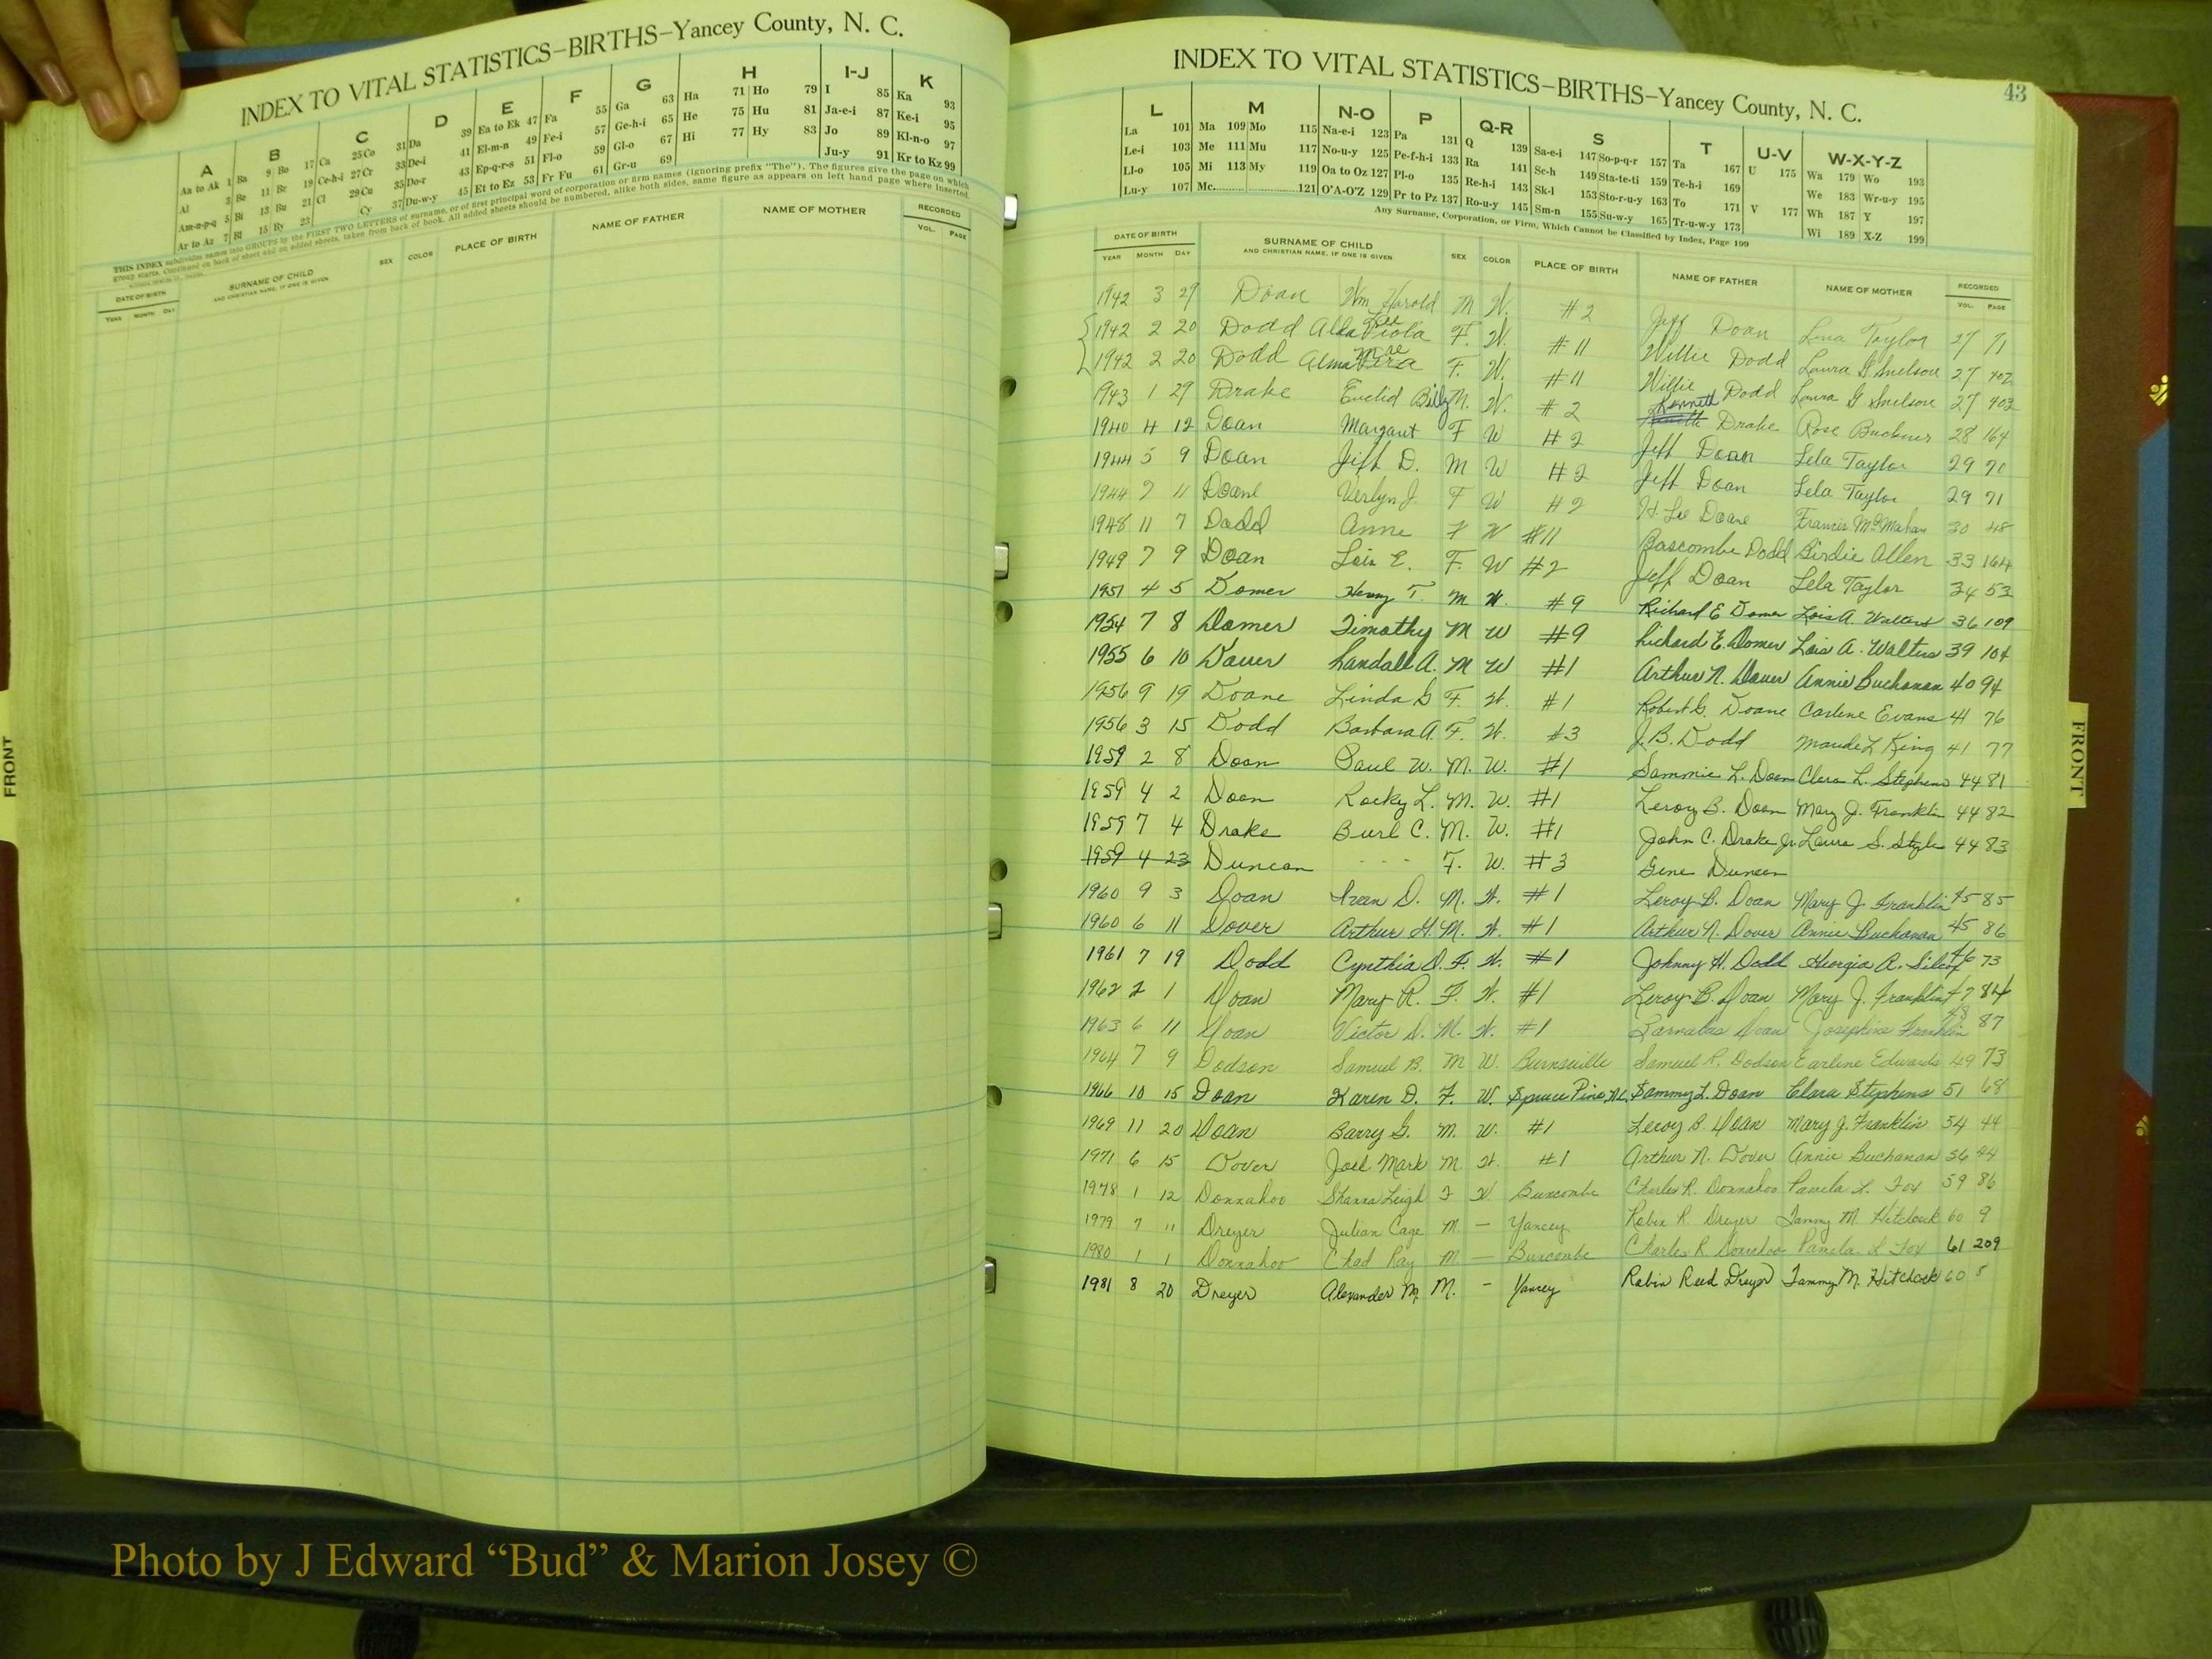 INDEX TO VITAL STATISTICS–BIRTHS–Yancey County, N. C.
A B C D E F G H I-J K
Aa to Ak 1 Ba 9 Bo 17 Ca 25 Co 31 Da 39 Ea to Ek 47 Fa 55 Ga 63 Ha 71 Ho 79 I 85 Ka 93
Al 3 Be 11 Br 19 Ce-h-i 27 Cr 33 De-i 41 El-m-n 49 Fe-i 57 Ge-h-i 65 He 75 Hu 81 Ja-e-i 87 Ke-i 95
Am-n-p-q 5 Bi 13 Bu 21 Cl 29 Cu 35 Do-r 43 Ep-q-r-s 51 Fl-o 59 Gl-o 67 Hi 77 Hy 83 Jo 89 Kl-n-o 97
Ar to Az 7 Bl 15 By 23 Cy 37 Du-w-y 45 Et to Ez 53 Fr Fu 61 Gr-u 69 Ju-y 91 Kr to Kz 99
THIS INDEX subdivides names into GROUPS by the FIRST TWO LETTERS of surname, or of first principal word of corporation or firm names (ignoring prefix "The"). The figures give the page on which
group starts. Continued on back of sheet and on added sheets, taken from back of book. All added sheets should be numbered, alike both sides, same figure as appears on left hand page where inserted.
DATE OF BIRTH SURNAME OF CHILD SEX COLOR PLACE OF BIRTH NAME OF FATHER NAME OF MOTHER RECORDED
YEAR MONTH DAY AND CHRISTIAN NAME, IF ONE IS GIVEN VOL. PAGE
FRONT
43
INDEX TO VITAL STATISTICS–BIRTHS–Yancey County, N. C.
L M N-O P Q-R S T U-V W-X-Y-Z
La 101 Ma 109 Mo 115 Na-e-i 123 Pa 131 Q 139 Sa-e-i 147 So-p-q-r 157 Ta 167 U 175 Wa 179 Wo 193
Le-i 103 Me 111 Mu 117 No-u-y 125 Pe-f-h-i 133 Ra 141 Sc-h 149 Sta-te-ti 159 Te-h-i 169 We 183 Wr-u-y 195
Ll-o 105 Mi 113 My 119 Oa to Oz 127 Pl-o 135 Re-h-i 143 Sk-l 153 Sto-r-u-y 163 To 171 V 177 Wh 187 Y 197
Lu-y 107 Mc 121 O'A-O'Z 129 Pr to Pz 137 Ro-u-y 145 Sm-n 155 Su-w-y 165 Tr-u-w-y 173 Wi 189 X-Z 199
Any Surname, Corporation, or Firm, Which Cannot be Classified by Index, Page 199
DATE OF BIRTH SURNAME OF CHILD SEX COLOR PLACE OF BIRTH NAME OF FATHER NAME OF MOTHER RECORDED
YEAR MONTH DAY AND CHRISTIAN NAME, IF ONE IS GIVEN VOL. PAGE
1942 3 29 Doan Wm Harold M W. #2 Jeff Doan Lena Taylor 27 71
1942 2 20 Dodd Alda Lee Viola F. W. #11 Willie Dodd Laura G. Snelson 27 402
1942 2 20 Dodd Alma Mae Vera F. W. #11 Willie Dodd Laura G Snelson 27 403
1943 1 29 Drake Euclid Billy M. W. #2 Kenneth Drake Rose Buckner 28 164
1940 4 12 Doan Margaret F W #2 Jeff Doan Lela Taylor 29 70
1944 5 9 Doan Jeff D. M W #2 Jeff Doan Lela Taylor 29 71
1944 7 11 Doane Verlyn J. F W #2 H. Lee Doane Francis McMahan 30 48
1948 11 7 Dodd Anne F W #11 Bascombe Dodd Birdie Allen 33 164
1949 7 9 Doan Lois E. F. W #2 Jeff Doan Lela Taylor 34 53
1951 4 5 Domer Henry T. M W. #9 Richard E Domer Lois A. Walters 36 109
1954 7 8 Domer Timothy M W #9 Richard E. Domer Lois A. Walters 39 104
1955 6 10 Dover Randall A. M W #1 Arthur N. Dover Annie Buchanan 40 94
1956 9 19 Doane Linda G F. W. #1 Robert G. Doane Carlene Evans 41 76
1956 3 15 Dodd Barbara A. F. W. #3 J. B. Dodd Maude L King 41 77
1959 2 8 Doan Paul W. M. W. #1 Sammie L. Doan Clara L. Stephens 44 81
1959 4 2 Doan Rocky L. M. W. #1 Leroy B. Doan Mary J. Franklin 44 82
1959 7 4 Drake Burl C. M. W. #1 John C. Drake Jr. Laura S. Styles 44 83
1959 4 23 Duncan - - - F. W. #3 Gene Duncan
1960 9 3 Doan D. M. W. #1 Leroy B. Doan Mary J. Franklin 45 85
1960 6 11 Dover Arthur G. M. W. #1 Arthur N. Dover Annie Buchanan 45 86
1961 7 19 Dodd Cynthia D. F. W. #1 Johnny H. Dodd Georgia A. Silcox 46 73
1962 2 1 Doan Mary R. F. W. #1 Leroy B. Doan Mary J. Franklin 47 84
1963 6 11 Doan Victor D. M. W. #1 Doan Josephine Franklin 48 87
1964 7 9 Dodson Samuel B. M W. Burnsville Samuel R. Dodson Earline Edwards 49 73
1966 10 15 Doan Karen D. F. W. Spruce Pine N.C. Sammy L. Doan Clara Stephens 51 68
1969 11 20 Doan Barry G. M. W. #1 Leroy B Doan Mary J. Franklin 54 44
1971 6 15 Dover Joel Mark M W. #1 Arthur N. Dover Annie Buchanan 56 44
1978 1 12 Donnahoo Shanna Leigh F W Buncombe Charles R. Donnahoo Pamela L. Fox 59 86
1979 7 11 Dreyer Julian Cage M. — Yancey Robin R. Dreyer Tammy M. Hitchcock 60 9
1980 1 1 Donnahoo Chad Ray M — Buncombe Charles R Donnahoo Pamela L Fox 61 209
1981 8 20 Dreyer Alexander M. M. - Yancey Robin Reed Dreyer Tammy M. Hitchcock 60 8
FRONT
Photo by J Edward “Bud” & Marion Josey ©